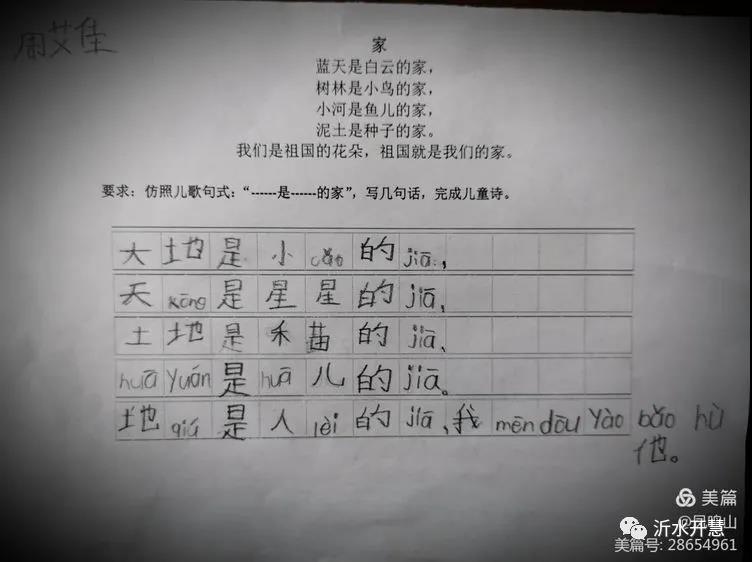 周艾佳
家
蓝天是白云的家，
树林是小鸟的家，
小河是鱼儿的家，
泥土是种子的家。
我们是祖国的花朵，祖国就是我们的家。
要求：仿照儿歌句式：“------是------的家”，写几句话，完成儿童诗。
大地是小cǎo的jiā，
天kōng是星星的jiā、
土地是禾苗的jiā、
huā yuán是huā儿的jiā。
地qiú是人lèi的jiā、我mēn dōu yào bǎo hù
他。
美篇
@昆鸣山
沂水开慧
美篇号: 28654961